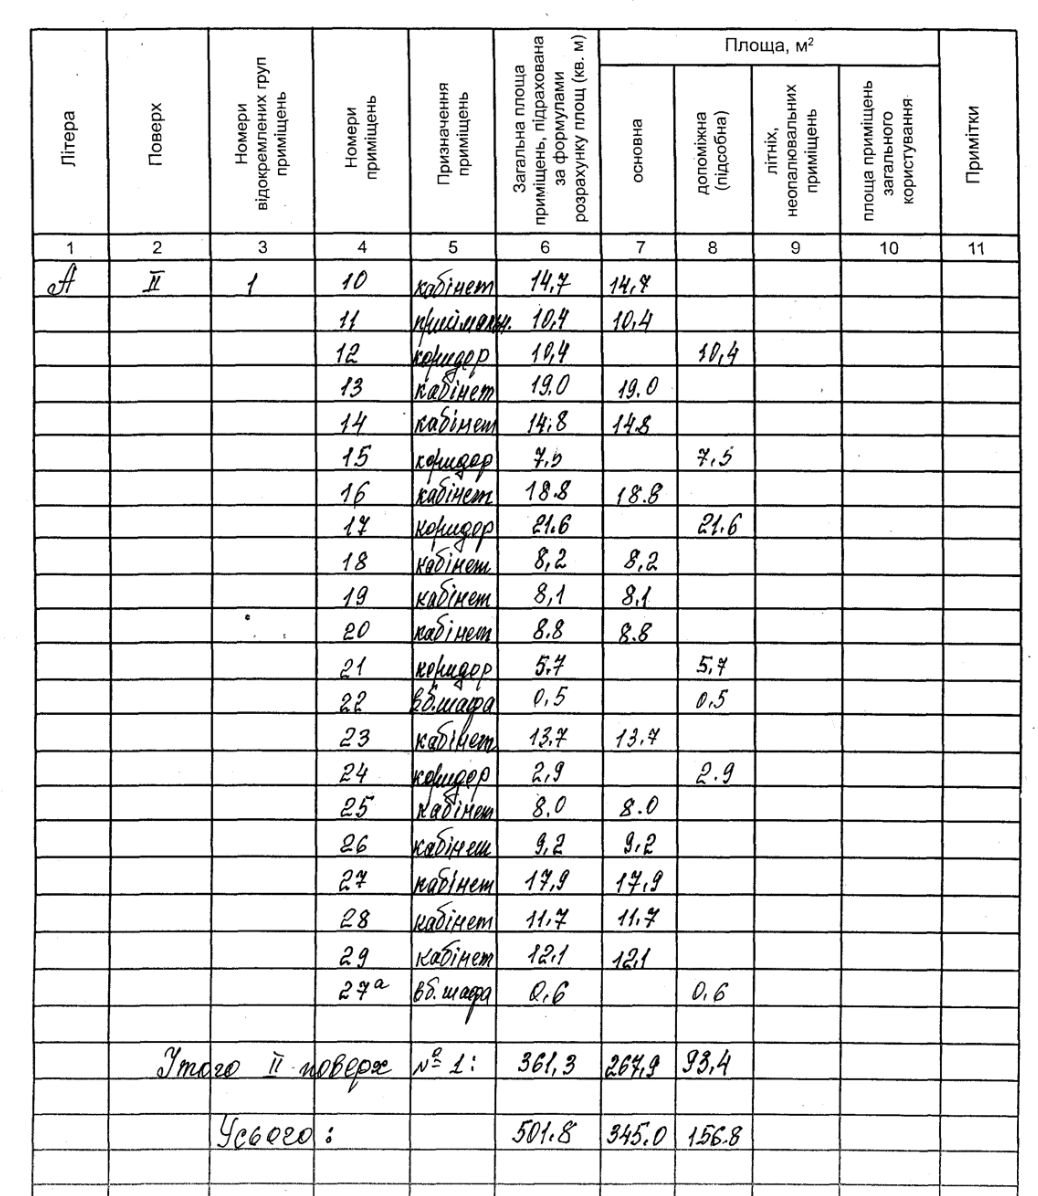 Літера
Поверх
Номери відокремлених груп приміщень
Номери приміщень
Призначення приміщень
Загальна площа приміщень, підрахована за формулами розрахунку площ (кв. м)
Площа, м²
основна
допоміжна (підсобна)
літніх, неопалювальних приміщень
площа приміщень загального користування
Примітки
1 2 3 4 5 6 7 8 9 10 11
А II 1 10 кабінет 14,7 14,7
11 приймальн. 10,4 10,4
12 коридор 10,4 10,4
13 кабінет 19.0 19.0
14 кабінет 14,8 14.8
15 коридор 7,5 7,5
16 кабінет 18.8 18.8
17 коридор 21.6 21.6
18 кабінет 8,2 8,2
19 кабінет 8,1 8,1
20 кабінет 8.8 8.8
21 коридор 5.7 5,7
22 вб.шафа 0,5 0,5
23 кабінет 13,7 13,7
24 коридор 2,9 2.9
25 кабінет 8.0 8.0
26 кабінет 9,2 9,2
27 кабінет 17,9 17,9
28 кабінет 11,7 11.7
29 кабінет 12,1 12,1
27а вб. шафа 0,6 0,6
Утого II поверх № 1: 361,3 267,9 93,4
Усього: 501.8 345.0 156.8